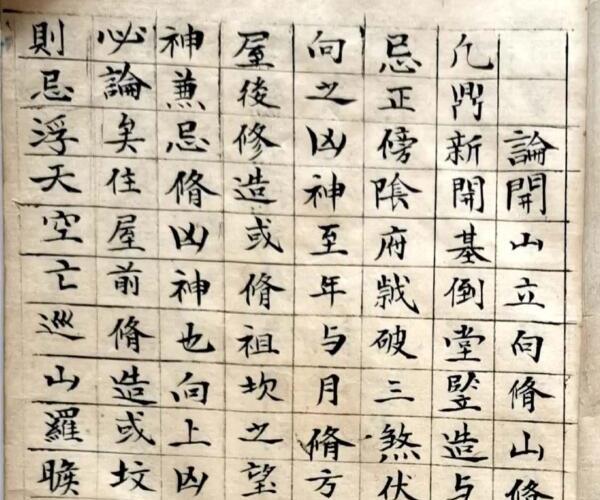 論開山立向脩山修
凢鼎新開基倒堂竪造与
忌正傍陰府破三煞伏
向之凶神至年与月脩方
屋後修造或脩祖坟之望
神兼忌脩凶神也向上凶
必論矣住屋前脩造或坟
則忌浮天空亡巡山羅睺